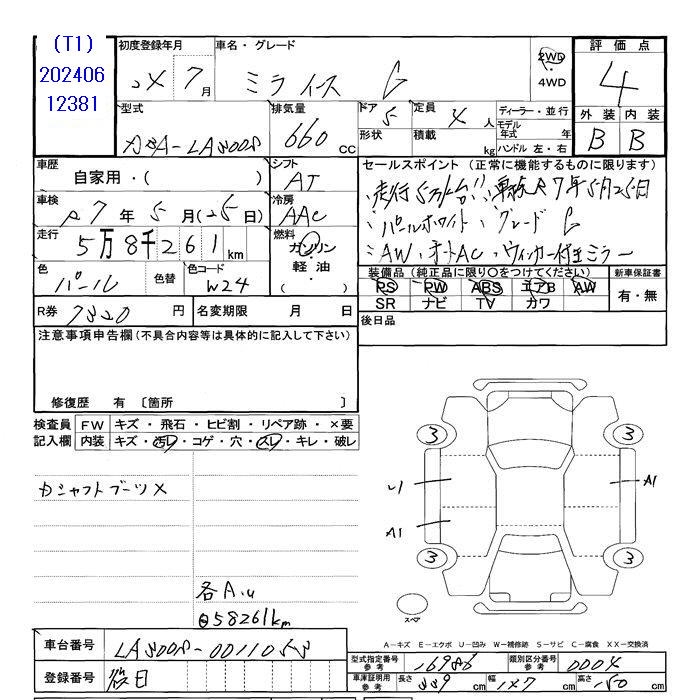 (T1)
202406
12381
初度登録年月
車名・グレード
評価点
7月
ミライース G
2WD
4WD
4
型式
排気量
ドア
定員
ディーラー・並行
外装 内装
660 cc
5
4人
モデル年式 年
B B
形状
積載 kg
ハンドル 左・右
車歴
シフト
セールスポイント (正常に機能するものに限ります)
自家用・( )
AT
車検
冷房
R7年5月(25日)
AAC
パールホワイト、グレード G
走行
燃料
5万8千261km
ガソリン
AW、オートAC、ウィンカー付ミラー
軽油
( )
色
色替
色コード
装備品 (純正品に限り○をつけてください)
新車保証書
パール
W24
PS PW ABS エアB AW
有・無
SR ナビ TV カワ
R券
7320円
名変期限 月 日
後日品
注意事項申告欄(不具合内容等は具体的に記入して下さい)
修復歴 有 〔箇所 〕
検査員
FW
キズ・飛石・ヒビ割・リペア跡・×要
記入欄
内装
キズ・汚レ・コゲ・穴・スレ・キレ・破レ
3 3
U1
A1
A1
カシャフトブーツ×
3 3
各A.U
58261km
スペア
A-キズ E-エクボ U-凹み W-補修跡 S-サビ C-腐食 XX-交換済
車台番号
型式指定番号 参考
16986
類別区分番号 参考
0004
登録番号
後日
車庫証明用 参考
長さ 339 cm
幅 147 cm
高さ 150 cm